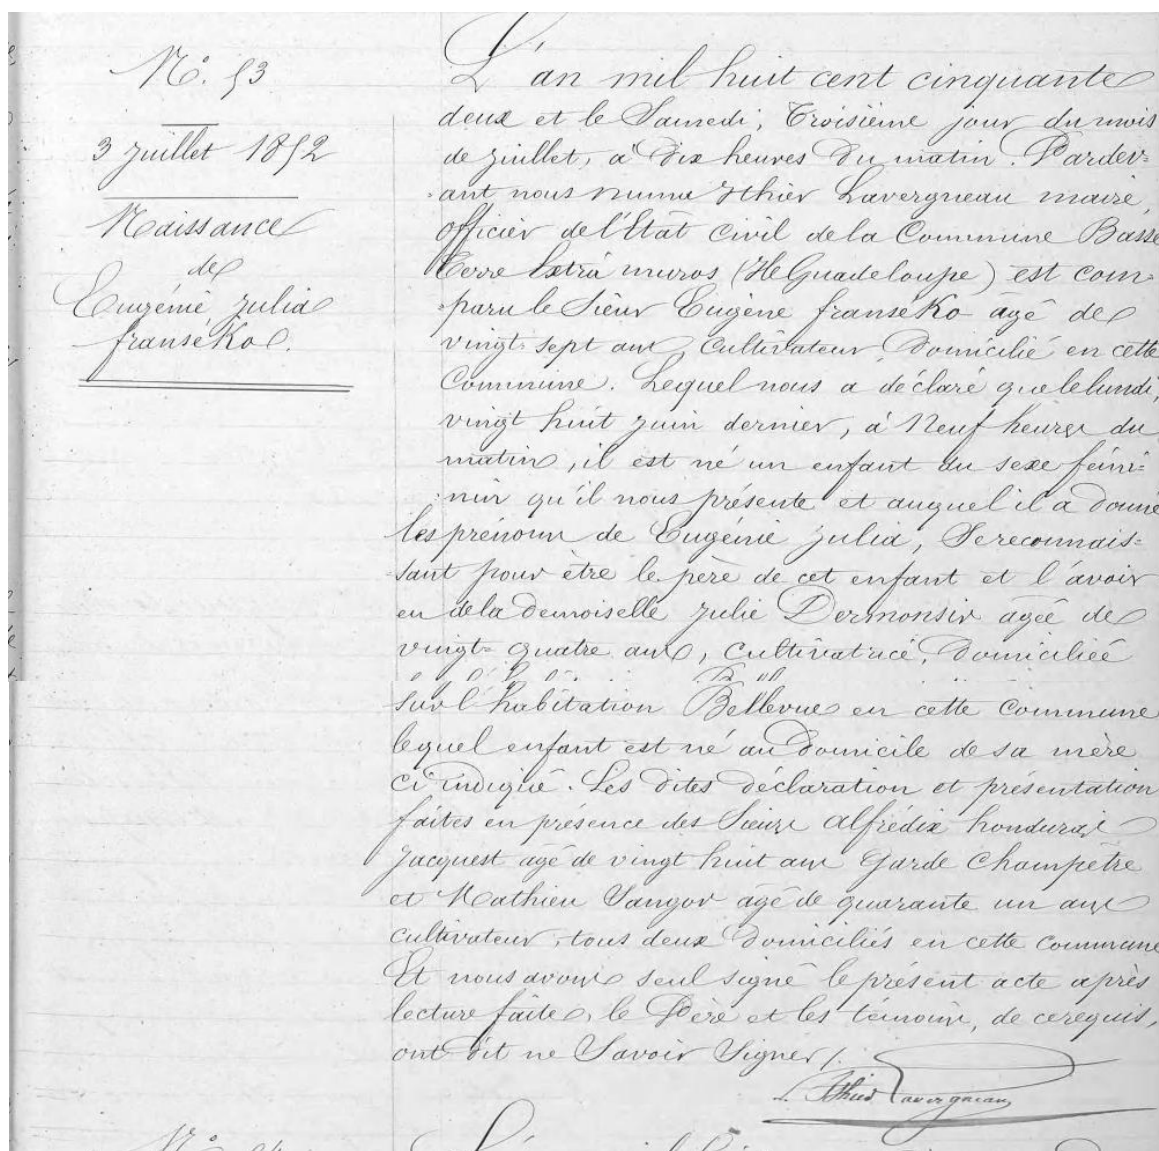 N°. 53
3 Juillet 1852
Naissance
de
Eugénie Julia
franséko.
L'an mil huit cent cinquante
deux et le Samedi, Troisième jour du mois
de Juillet, à Dix heures Du matin. Pardev-
-ant nous Numa Ithier Lavergneau maire,
officier de l'Etat Civil de la Commune Basse
Terre Extra muros (Ile Guadeloupe) est com-
-paru le Sieur Eugène franséKo âgé de
vingt-sept ans, Cultivateur, Domicilié en cette
Commune. Lequel nous a déclaré que le lundi,
vingt huit Juin dernier, à Neuf heures du
matin, il est né un enfant du sexe fémi-
-nin qu'il nous présente et auquel il a donné
les prénoms de Eugénie Julia, Se reconnais-
-sant pour être le père de cet enfant et l'avoir
eu de la demoiselle Julie Dermonsir agée de
vingt-quatre ans, Cultivatrice, Domiciliée
sur l'habitation Bellevue en cette Commune
lequel enfant est né au Domicile de sa mère
ci indiqué. Les Dites déclaration et présentation
faites en présence des Sieurs Alfrédix
Jacquest agé de vingt huit ans Garde Champêtre
et Mathieu Sangor agé de quarante un ans
cultivateur, tous deux Domiciliés en cette commune
Et nous avons seul signé le présent acte après
lecture faite, le Père et les témoins, de ce requis,
ont Dit ne Savoir Signer /.
Ithier Lavergneau